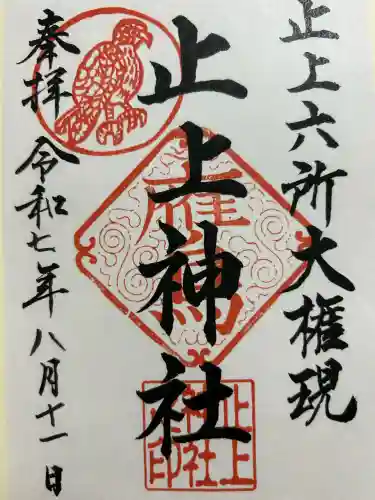 止上六所大権現
止上神社
奉拝
令和七年八月十一日
止上
神社
之印